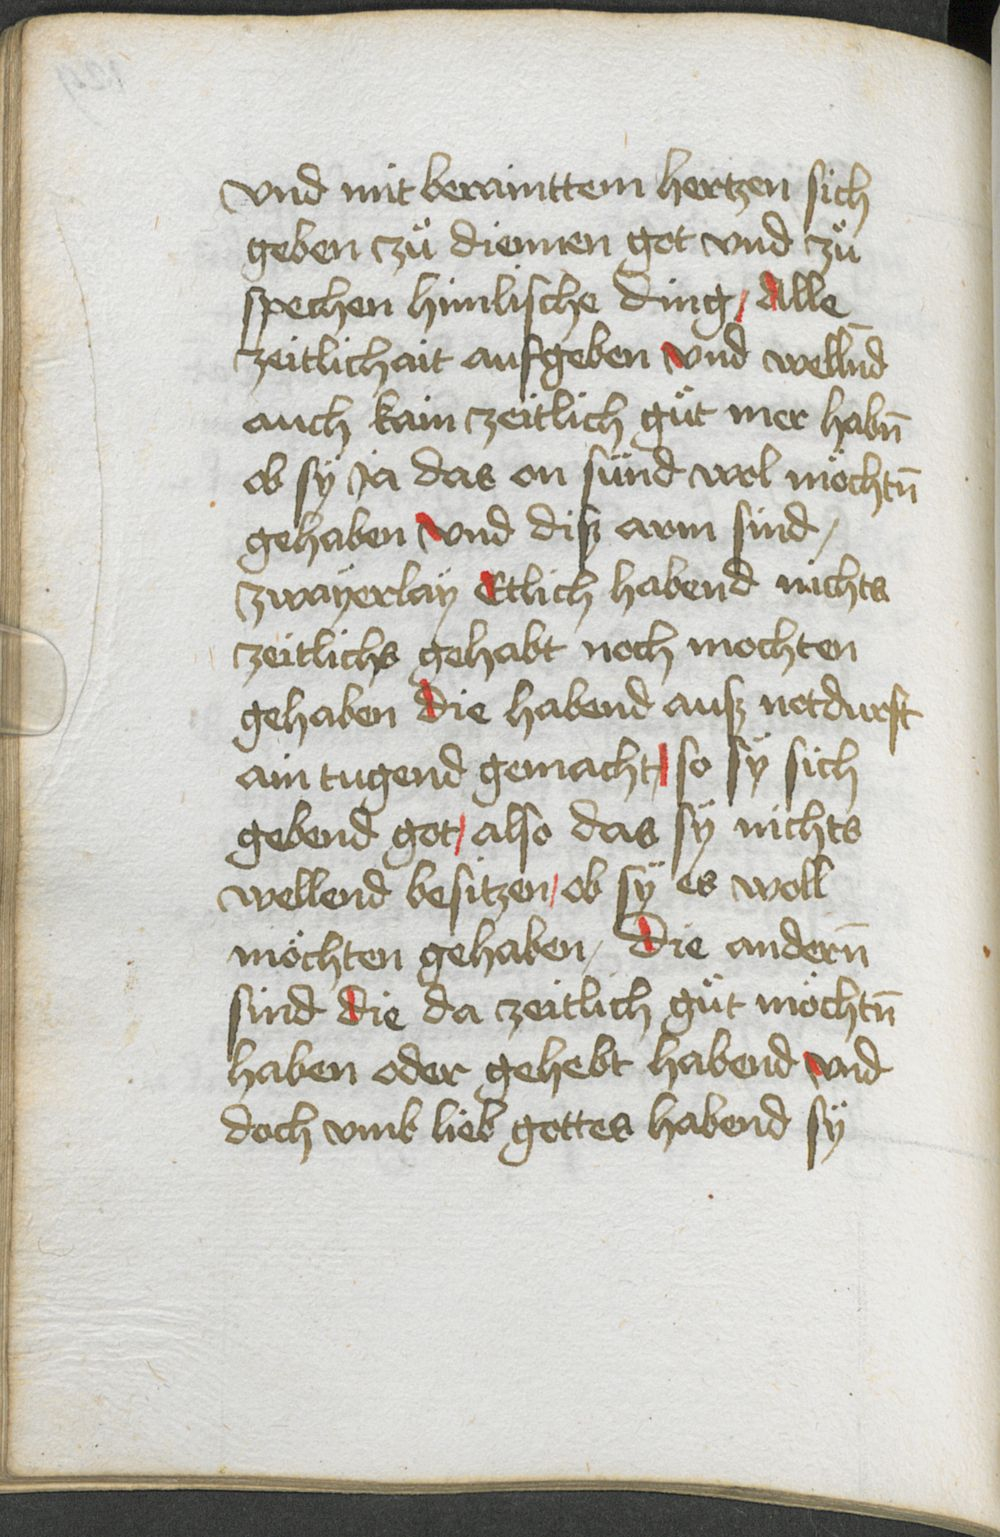 vnd mit berainttem hertzen sich
geben zů diennen got vnd zů
spechen himlische ding / Alle
zeitlichait aufgeben vnd welln̄d
auch kain zeitlich gůt mer habn̄
ob sÿ ja das on sünd wol möchtn̄
gehaben Vnd disz arm sind /
zwaÿerlaÿ Etlich habend nichts
zeitlichs gehabt noch mochten
gehaben Die habend ausz notdurft
ain tugend gemacht / so sÿ sich
gebend got / also das sÿ nichts
wellend besitzen / ob sÿ es woll
möchten gehaben / Die andern̄
sind die da zeitlich gůt möchtn̄
haben oder gehebt habend vnd
doch vmb lieb gottes habend sÿ